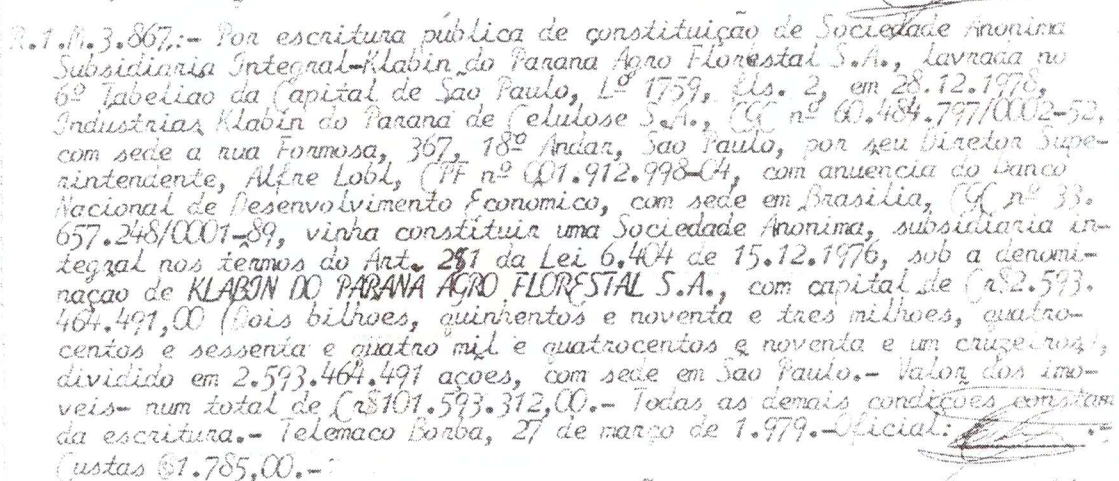 R.1.M.3.867.:- Por escritura pública de constituição de Sociedade Anonima
Subsidiaria Integral-Klabin do Parana Agro Florestal S.A., lavrada no
6º Tabeliao da Capital de Sao Paulo, Lº 1759, fls. 2, em 28.12.1978,
Industrias Klabin do Parana de Celulose S.A., CGC nº 60.484.797/0002-52,
com sede a rua Formosa, 367, 18º Andar, Sao Paulo, por seu Diretor Supe-
rintendente, Alfre Lobl, CPF nº 001.912.998-04, com anuencia do Banco
Nacional de Desenvolvimento Economico, com sede em Brasilia, CGC nº 33.
657.248/0001-89, vinha constituir uma Sociedade Anonima, subsidiaria in-
tegral nos termos do Art. 251 da Lei 6.404 de 15.12.1976, sob a denomi-
naçao de KLABIN DO PARANA AGRO FLORESTAL S.A., com capital de Cr$2.593.
464.491,00 (Dois bilhoes, quinhentos e noventa e tres milhoes, quatro-
centos e sessenta e quatro mil e quatrocentos e noventa e um cruzeiros),
dividido em 2.593.464.491 açoes, com sede em Sao Paulo.- Valor dos imo-
veis- num total de Cr$101.593.312,00.- Todas as demais condiçoes constam
da escritura.- Telemaco Borba, 27 de março de 1.979.-Oficial: .-
Custas $1.785,00.-